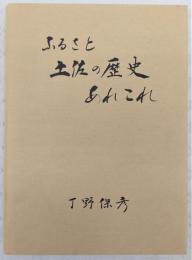 ふるさと
土佐の歴史
あれこれ
丁野保彦